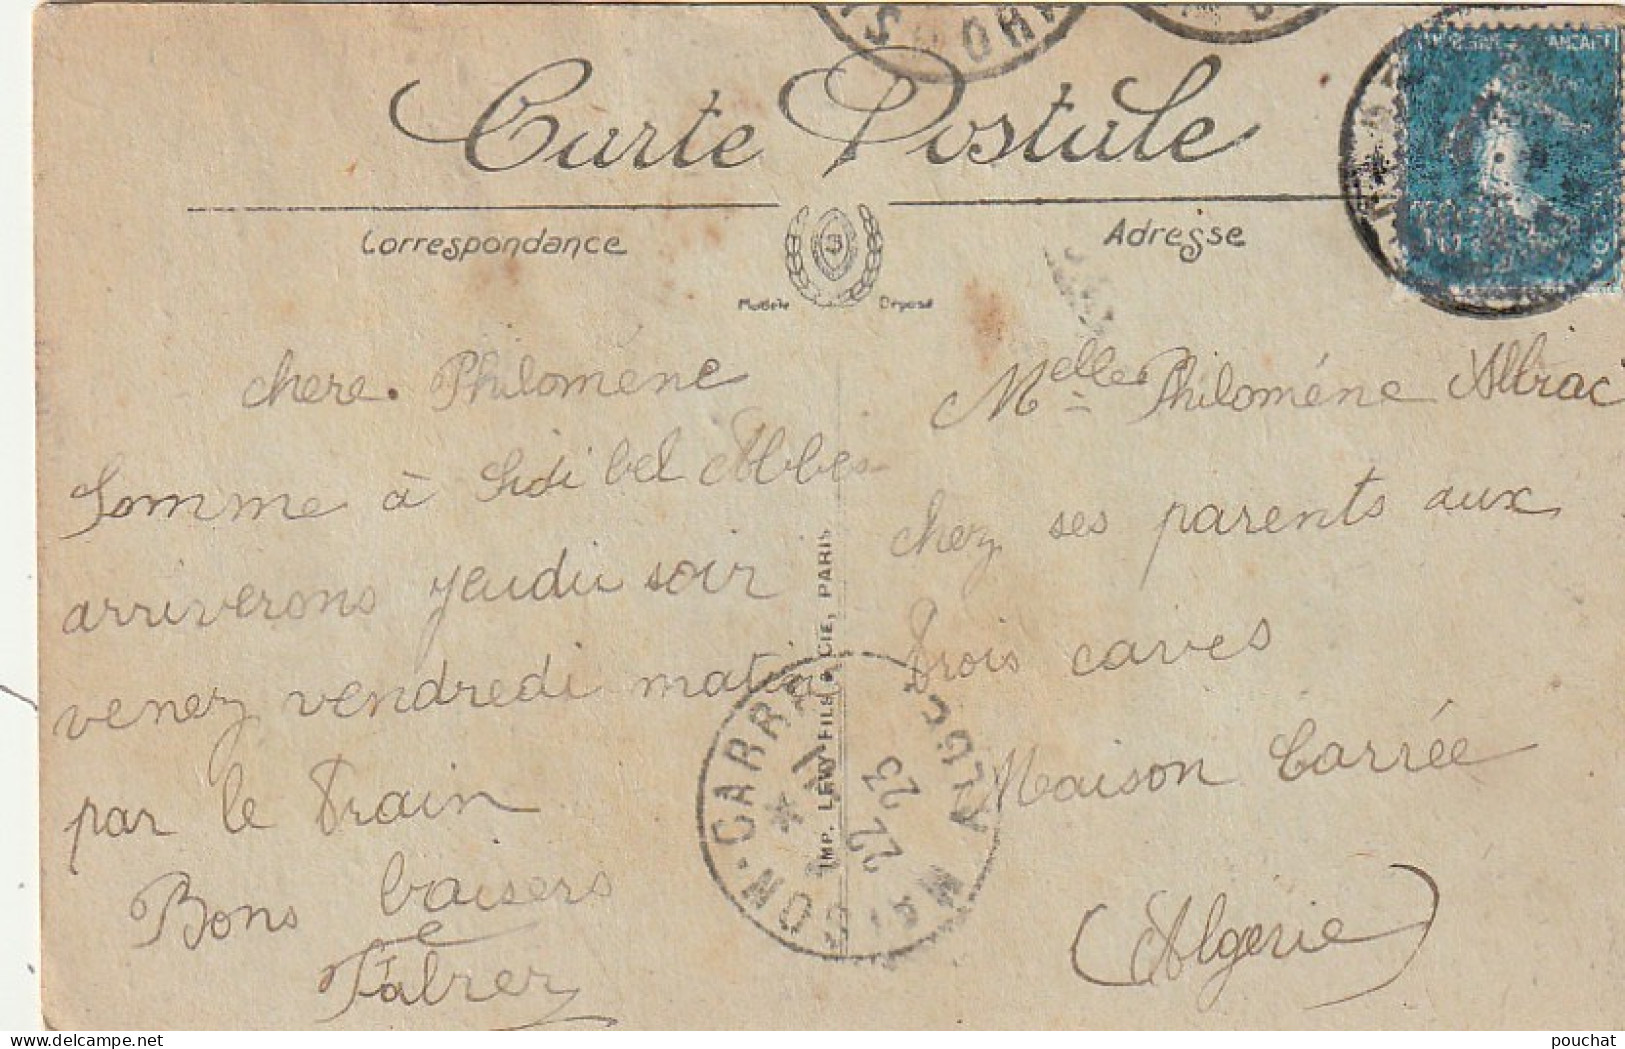 Carte Postale
Correspondance
Adresse
3
Modèle Déposé
chere. Philoméne
Somme à Sidi bel Abbes
arriverons Jeudi soir
venez vendredi matin
par le Train
Bons baisers
IMP. LEVY FILS & CIE, PARIS
MAISON-CARRÉE
ALGER
22
23
Melle Philoméne
chez ses parents aux
Trois caves
Maison Carrée
(Algerie)
pouchat